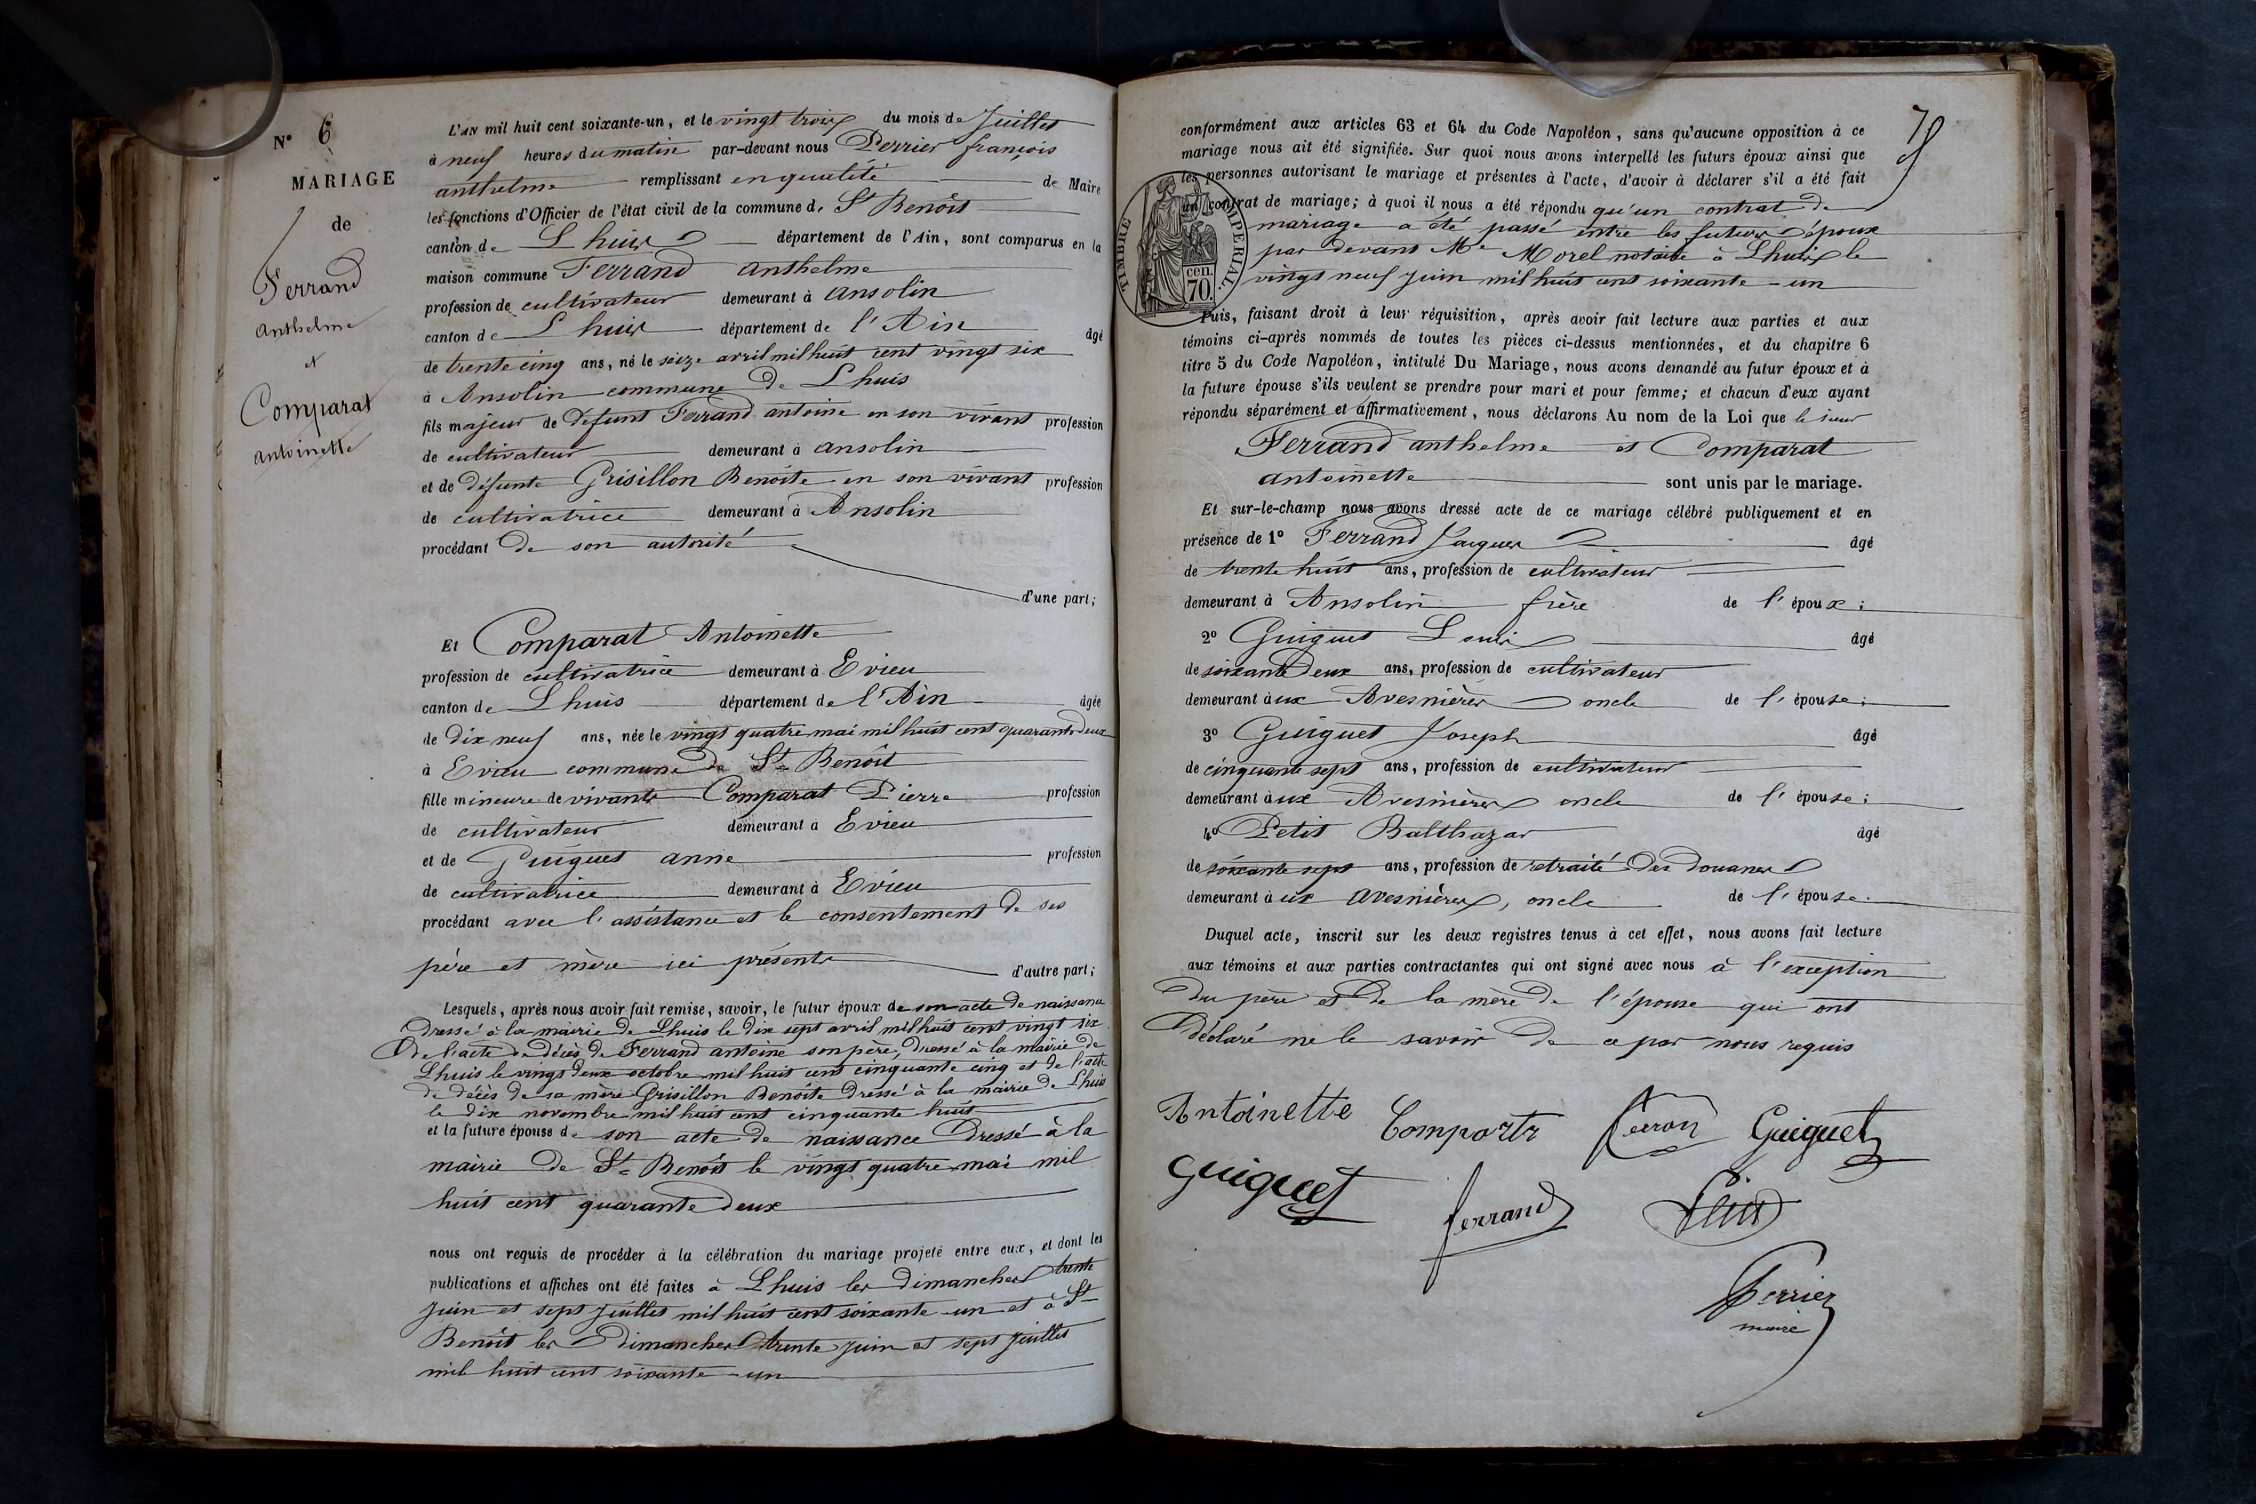 N° 6
MARIAGE
de
Ferrand
anthelme
&
Comparat
antoinette
L'AN mil huit cent soixante-un, et le vingt trois du mois de Juillet
à neuf heures du matin par-devant nous Perrier françois
anthelme remplissant en qualité de Maire
les fonctions d'Officier de l'état civil de la commune de St Benoît
canton de Lhuis département de l'Ain, sont comparus en la
maison commune Ferrand anthelme
profession de cultivateur demeurant à ansolin
canton de Lhuis département de l'Ain âgé
de trente cinq ans, né le seize avril mil huit cent vingt six
à Ansolin commune de Lhuis
fils majeur de défunt Ferrand antoine en son vivant profession
de cultivateur demeurant à ansolin
et de défunte Grisillon Benoite en son vivant profession
de cultivatrice demeurant à Ansolin
procédant de son autorité
d'une part;
Et Comparat Antoinette
profession de cultivatrice demeurant à Evieu
canton de Lhuis département de l'Ain âgée
de dix neuf ans, née le vingt quatre mai mil huit cent quarante deux
à Evieu commune de St Benoît
fille mineure de vivants Comparat Pierre profession
de cultivateur demeurant à Evieu
et de Guiguet anne profession
de cultivatrice demeurant à Evieu
procédant avec l'assistance et le consentement de ses
père et mère ici présents d'autre part;
Lesquels, après nous avoir fait remise, savoir, le futur époux de son acte de naissance
dressé à la mairie de Lhuis le dix sept avril mil huit cent vingt six
de l'acte de décès de Ferrand antoine son père, dressé à la mairie de
Lhuis le vingt deux octobre mil huit cent cinquante cinq et de l'acte
de décès de sa mère Grisillon Benoite dressé à la mairie de Lhuis
le dix novembre mil huit cent cinquante huit
et la future épouse de son acte de naissance dressé à la
mairie de St Benoît le vingt quatre mai mil
huit cent quarante deux
nous ont requis de procéder à la célébration du mariage projeté entre eux, et dont les
publications et affiches ont été faites à Lhuis les dimanches trente
juin et sept juillet mil huit cent soixante un et à St
Benoît les dimanches trente juin et sept juillet
mil huit cent soixante un
conformément aux articles 63 et 64 du Code Napoléon, sans qu'aucune opposition à ce
mariage nous ait été signifiée. Sur quoi nous avons interpellé les futurs époux ainsi que
les personnes autorisant le mariage et présentes à l'acte, d'avoir à déclarer s'il a été fait
un contrat de mariage; à quoi il nous a été répondu qu'un contrat de
mariage a été passé entre les futurs époux
par devant Me Morel notaire à Lhuis le
vingt neuf juin mil huit cent soixante-un
TIMBRE IMPERIAL.
cen.
70.
Puis, faisant droit à leur réquisition, après avoir fait lecture aux parties et aux
témoins ci-après nommés de toutes les pièces ci-dessus mentionnées, et du chapitre 6
titre 5 du Code Napoléon, intitulé Du Mariage, nous avons demandé au futur époux et à
la future épouse s'ils veulent se prendre pour mari et pour femme; et chacun d'eux ayant
répondu séparément et affirmativement, nous déclarons Au nom de la Loi que le sieur
Ferrand anthelme et Comparat
antoinette sont unis par le mariage.
Et sur-le-champ nous avons dressé acte de ce mariage célébré publiquement et en
présence de 1° Ferrand Jacques âgé
de trente huit ans, profession de cultivateur
demeurant à Ansolin frère de l'époux;
2° Guiguet Louis âgé
de soixante deux ans, profession de cultivateur
demeurant aux Avesnières oncle de l'épouse;
3° Guiguet Joseph âgé
de cinquante sept ans, profession de cultivateur
demeurant aux Avesnières oncle de l'épouse;
4° Petit Balthazar âgé
de soixante sept ans, profession de retraité des douanes
demeurant aux avesnières, oncle de l'épouse.
Duquel acte, inscrit sur les deux registres tenus à cet effet, nous avons fait lecture
aux témoins et aux parties contractantes qui ont signé avec nous à l'exception
du père et de la mère de l'épouse qui ont
déclaré ne le savoir de ce par nous requis
Antoinette Comportr Guiguet
Guiguet ferrand
Perrier
maire